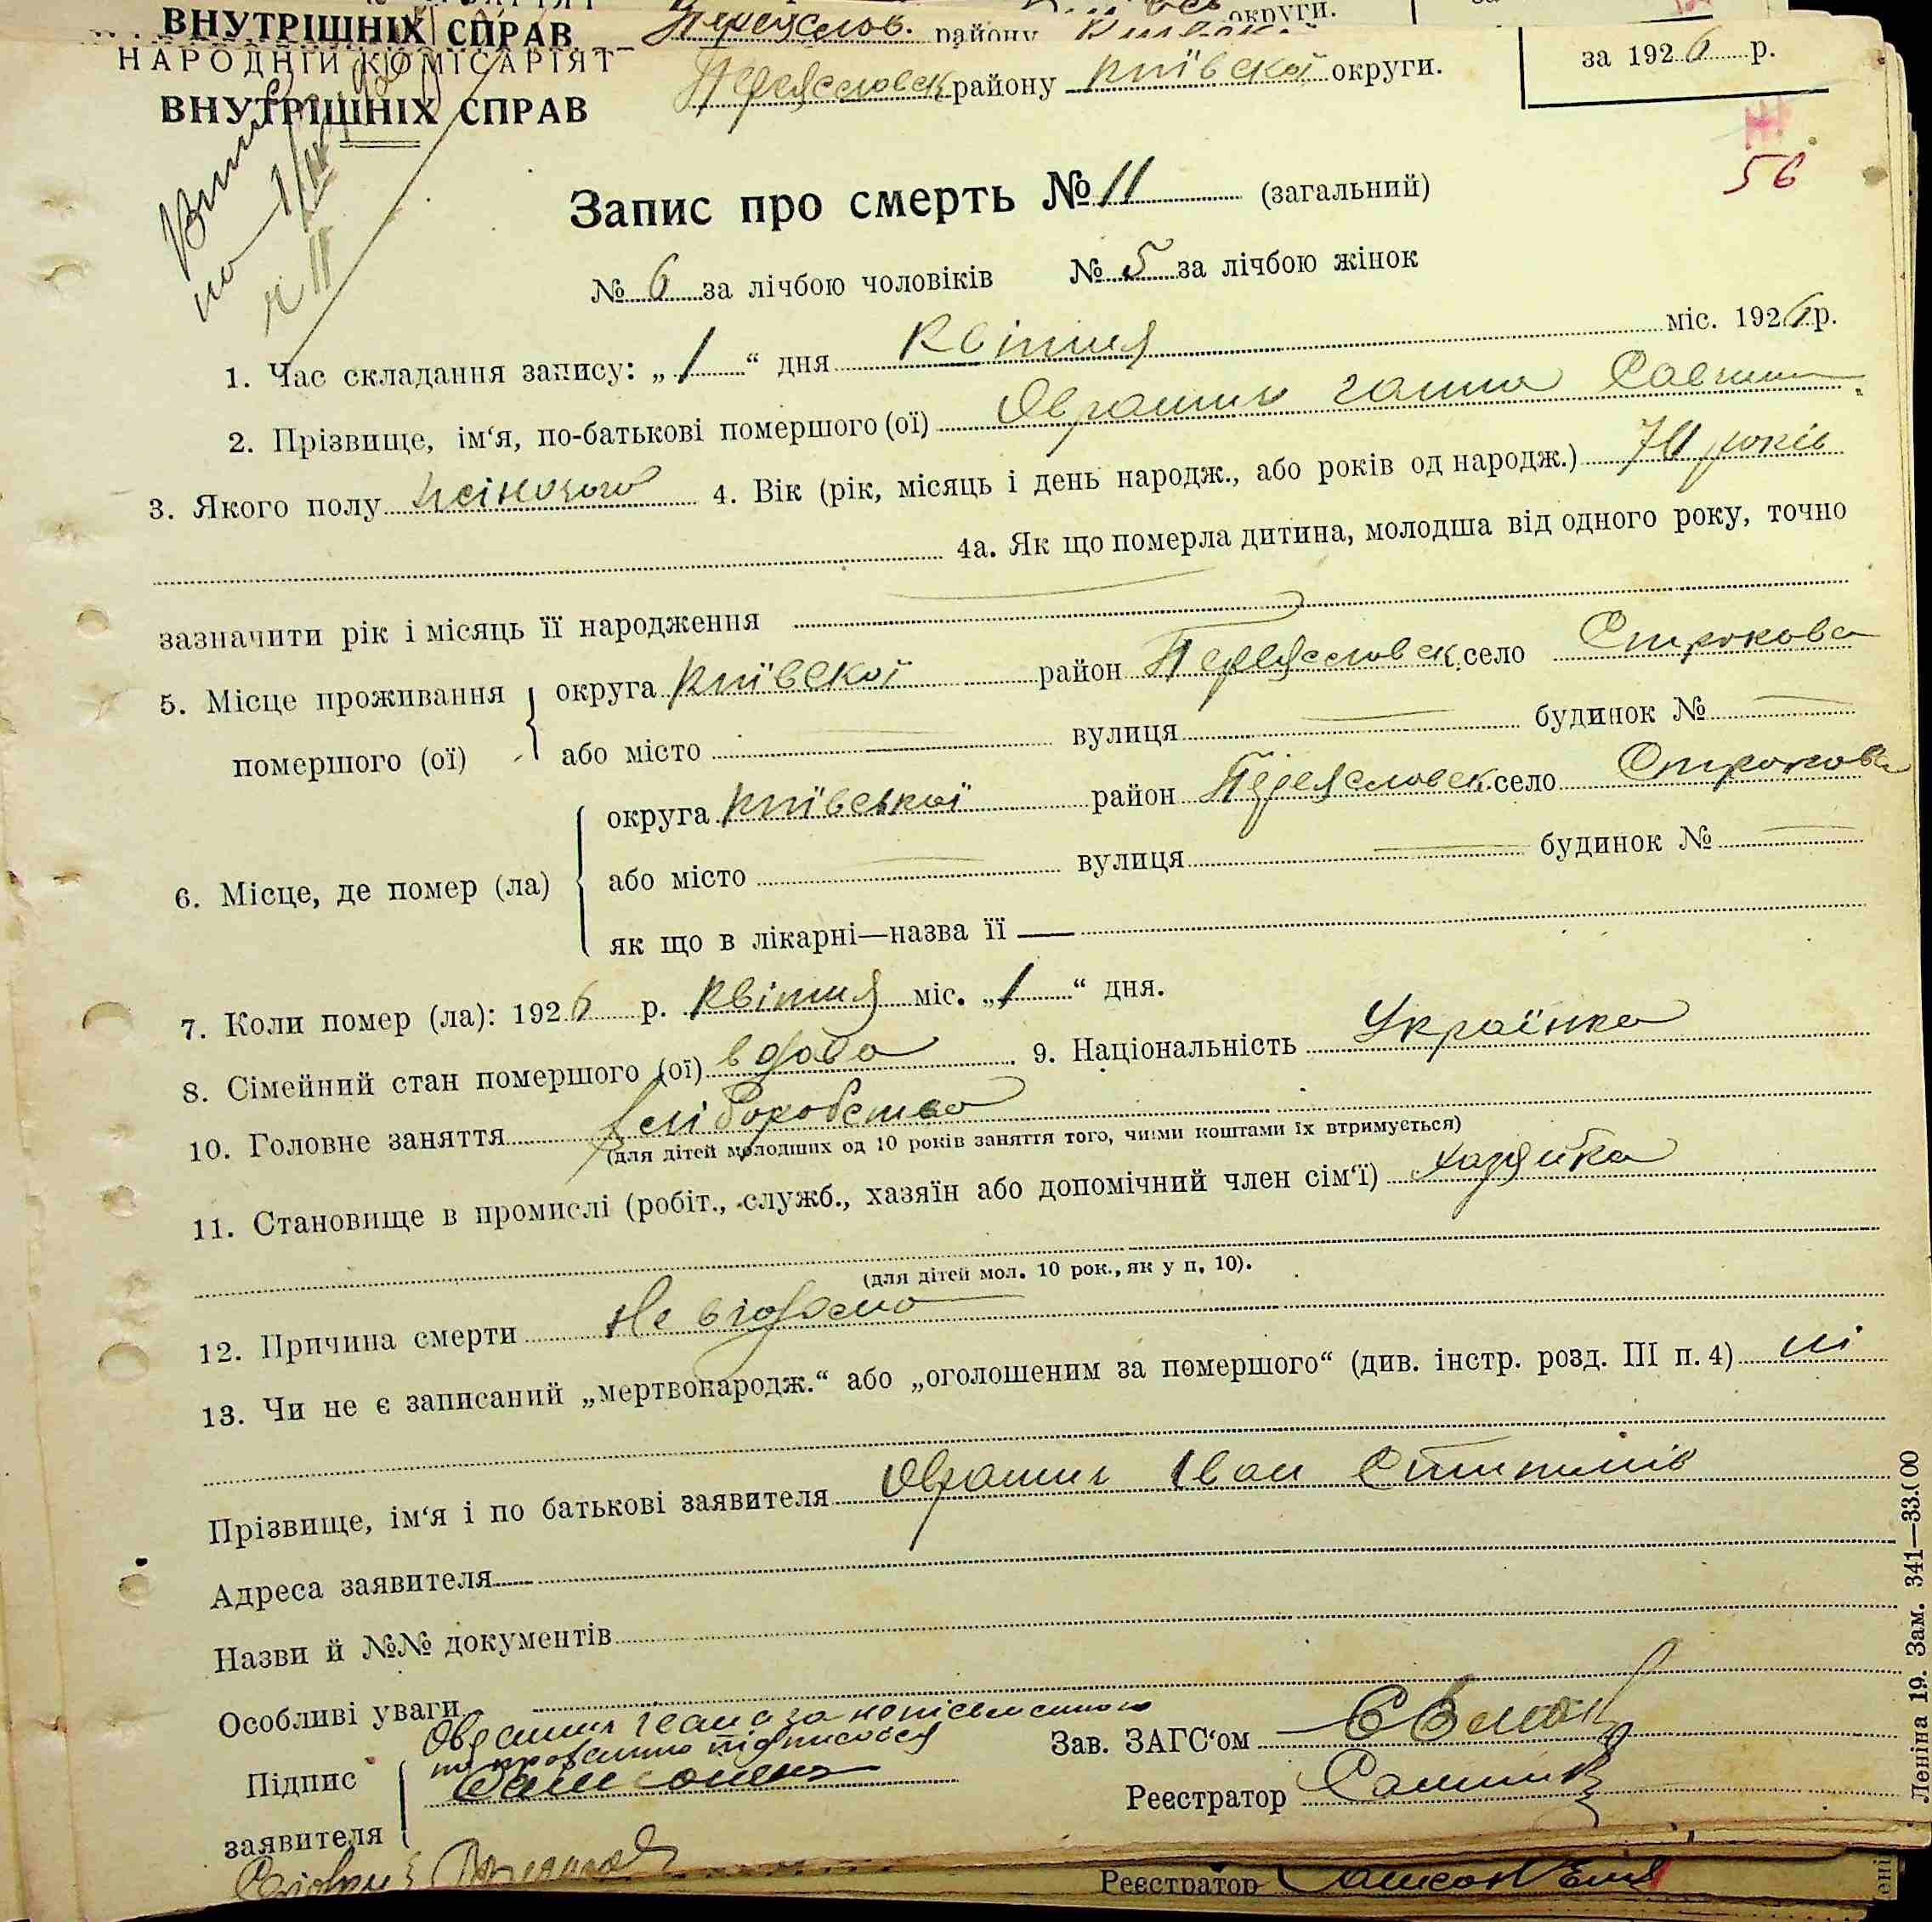 ВНУТРІШНІХ СПРАВ район округи.
НАРОДНІЙ КОМІСАРІЯТ
ВНУТРІШНІХ СПРАВ
району Київської округи.
за 1926 р.
56
Запис про смерть № 11 (загальний)
№ 6 за лічбою чоловіків № 5 за лічбою жінок
1. Час складання запису: „1“ дня Квітня міс. 1926 р.
2. Прізвище, ім‘я, по-батькові помершого (ої) ганна
3. Якого полу жіночого 4. Вік (рік, місяць і день народж., або років од народж.) 70 років
4а. Як що померла дитина, молодша від одного року, точно
зазначити рік і місяць її народження
5. Місце проживання помершого (ої) округа Київскої район Переяславск село Строкова
або місто — вулиця — будинок № —
6. Місце, де помер (ла) округа Київської район Переяславск село Строкова
або місто — вулиця — будинок № —
як що в лікарні—назва її —
7. Коли помер (ла): 1926 р. Квітня міс. „1“ дня.
8. Сімейний стан помершого (ої) вдова 9. Національність Українка
10. Головне заняття хліборобство
(для дітей молодших од 10 років заняття того, чиїми коштами їх втримується)
11. Становище в промислі (робіт., служб., хазяїн або допомічний член сім‘ї) хазяйка
(для дітей мол. 10 рок., як у п. 10).
12. Причина смерти Не відомо
13. Чи не є записаний „мертвонародж.“ або „оголошеним за помершого“ (див. інстр. розд. III п. 4) ні
Прізвище, ім‘я і по батькові заявителя Іван
Адреса заявителя
Назви й №№ документів
Особливі уваги
Підпис заявителя
Зав. ЗАГС‘ом
Реєстратор
Реєстратор
Леніна 19. Зам. 341—33.000